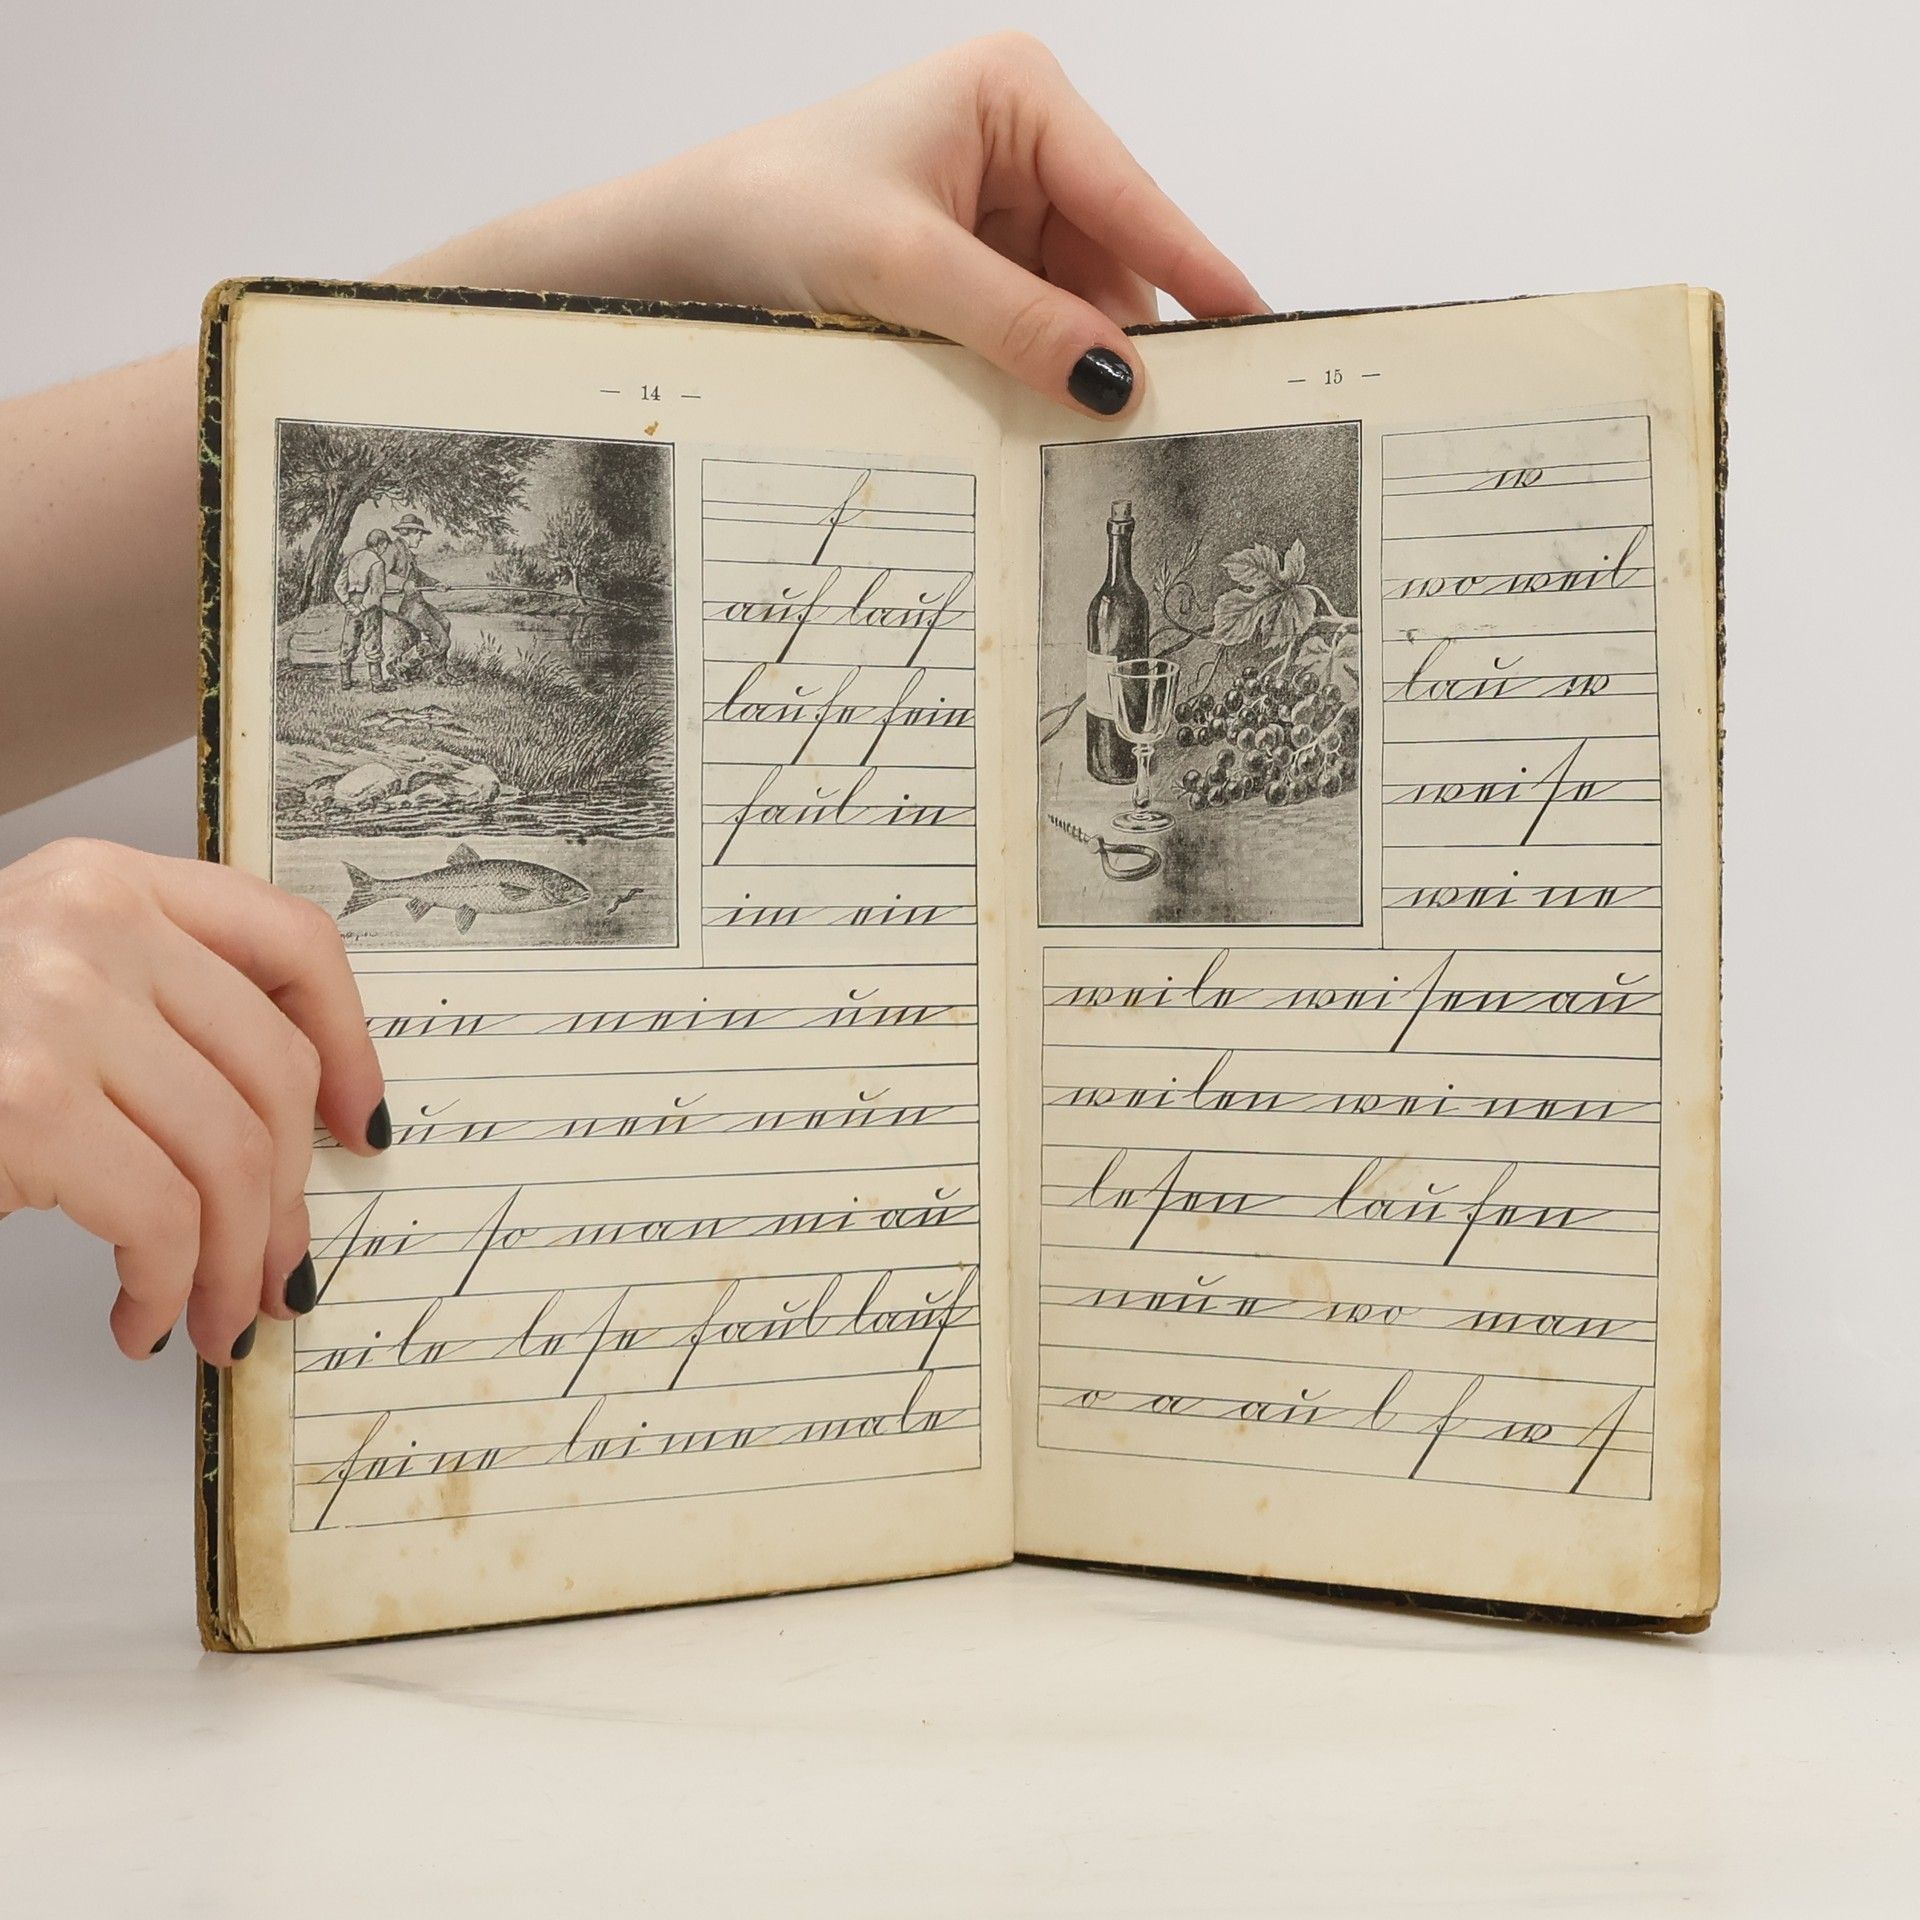 — 14 —
f
auf lauf
laufe fein
faul in
im ein
mein um
neu neun
ſei ſo man miau
eile leſe faul lauf
feine leime male
— 15 —
w
wo weil
lau w
weiſe
weine
weile weiſen au
weilen weinen
leſen laufen
neue wo man
o a au l f w ſ